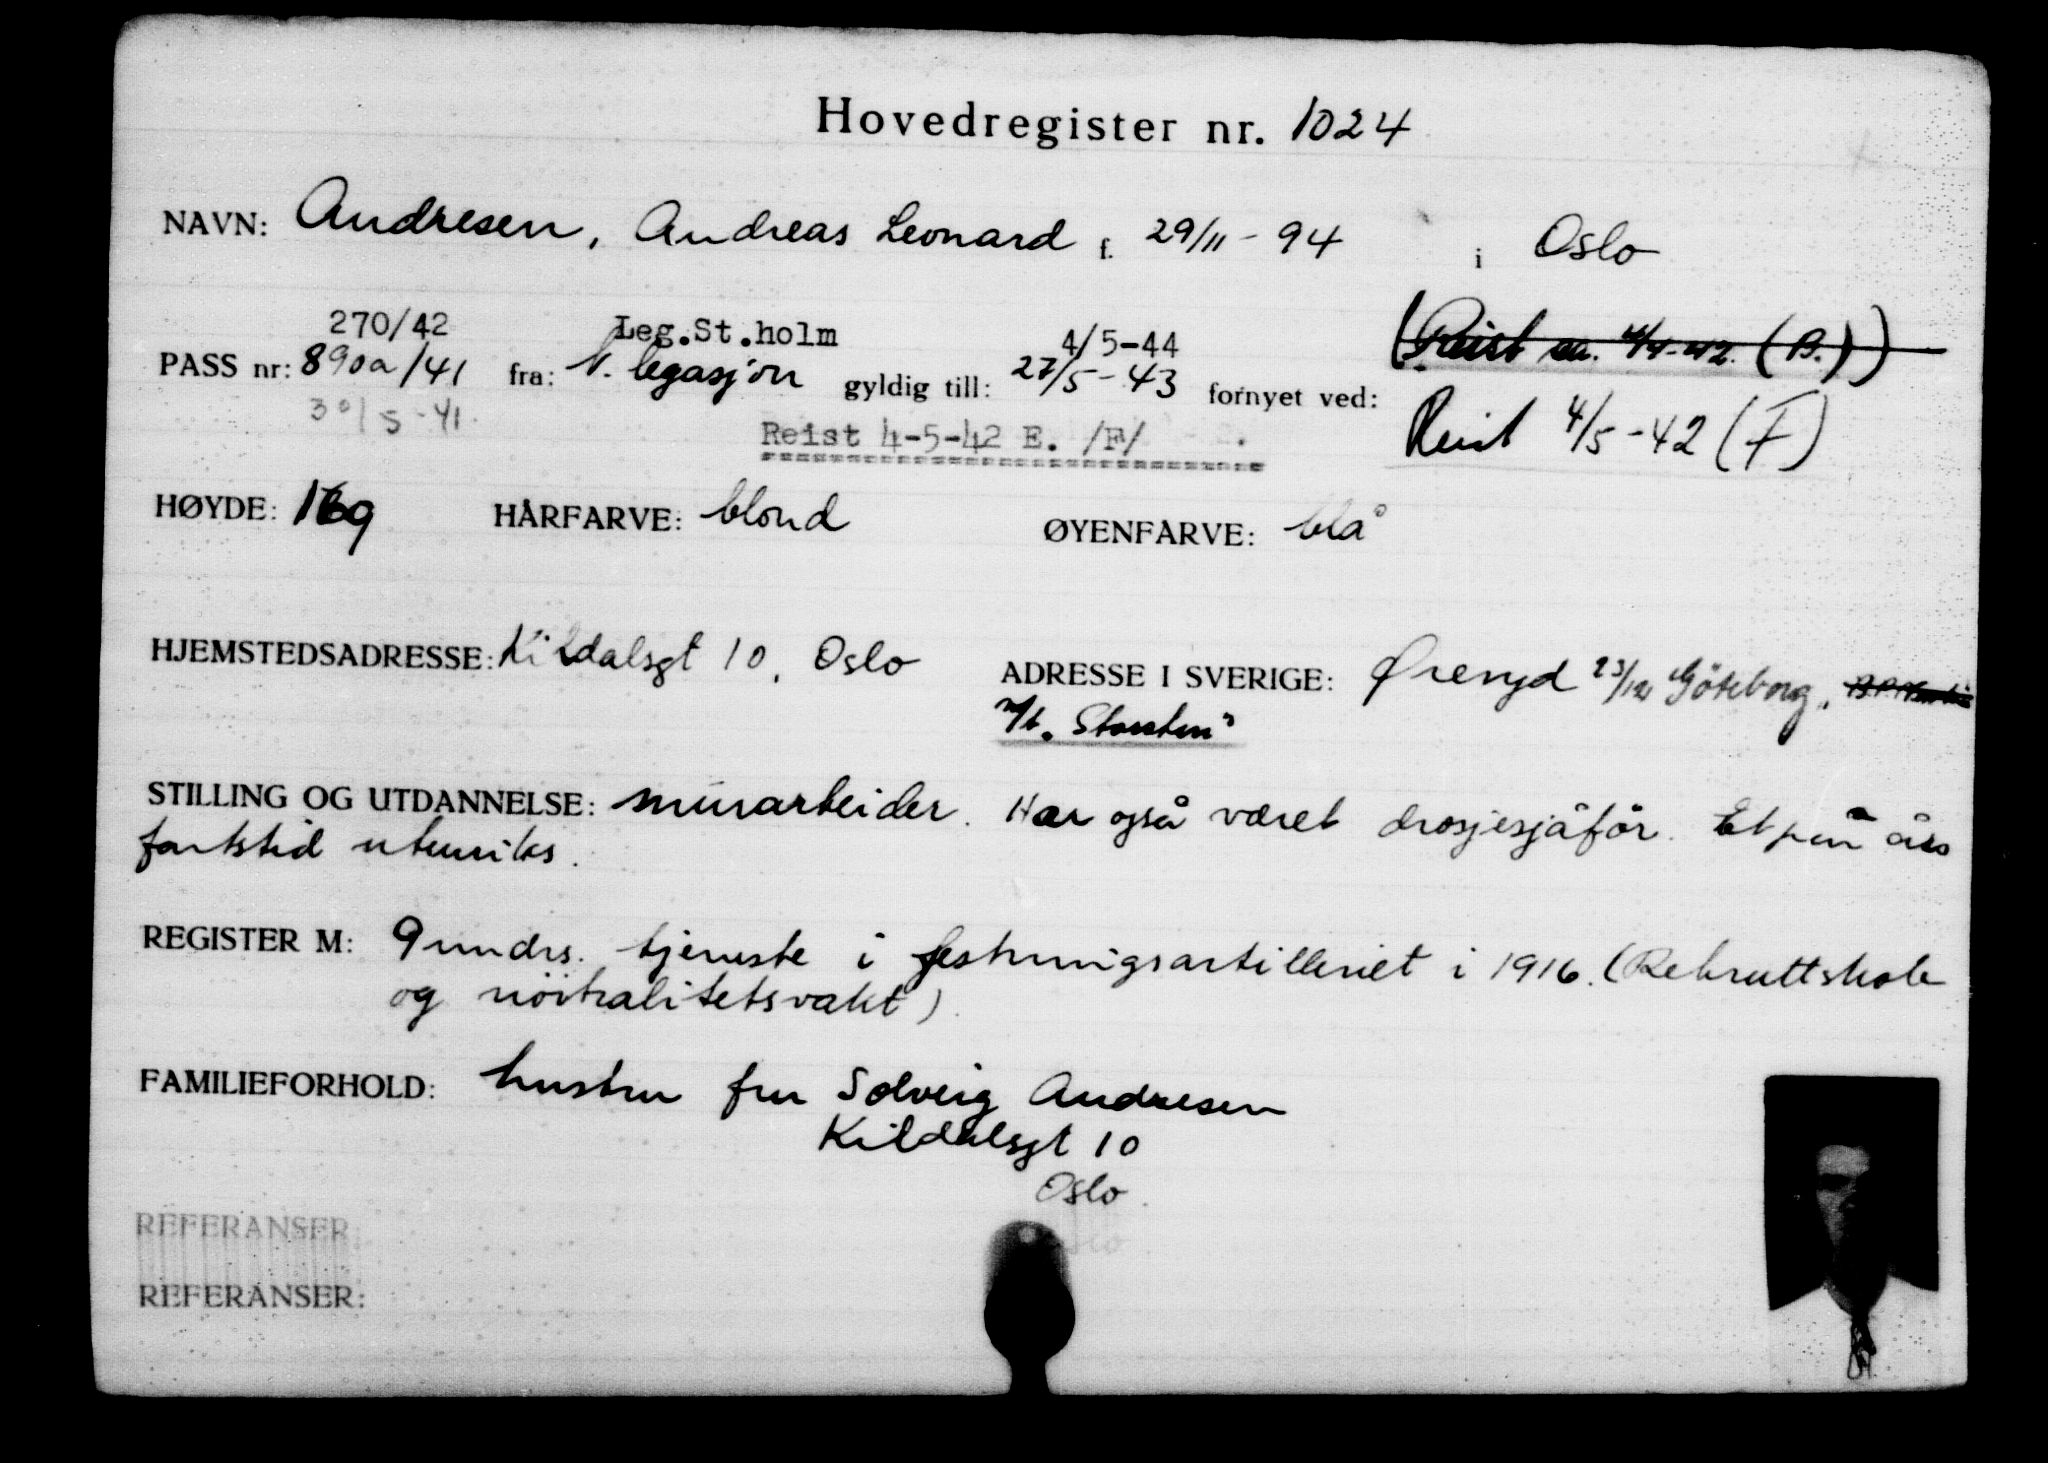 Hovedregister nr. 1024
NAVN: Andresen, Andreas Leonard f. 29/11-94 i Oslo
270/42 Leg.St.holm 4/5-44 (Reist ca. 4/4-42. (B.))
PASS nr: 890a/41 fra: N. legasjon gyldig till: 27/5-43 fornyet ved:
30/5-41. Reist 4-5-42 E. /F/ Reist 4/5-42 (F)
HØYDE: 169 HÅRFARVE: blond ØYENFARVE: blå
HJEMSTEDSADRESSE: Kildalsgt 10, Oslo ADRESSE I SVERIGE: Øreryd 23/12 Göteborg.
M/t. "Storsten"
STILLING OG UTDANNELSE: murarbeider. Har også været drosjesjåför. Et par års
fartstid utenriks.
REGISTER M: 9 mndrs. tjeneste i festningsartilleriet i 1916. (Rekruttskole
og nöitralitetsvakt)
FAMILIEFORHOLD: hustru fru Solveig Andresen
Kildalsgt 10
Oslo
REFERANSER:
REFERANSER: